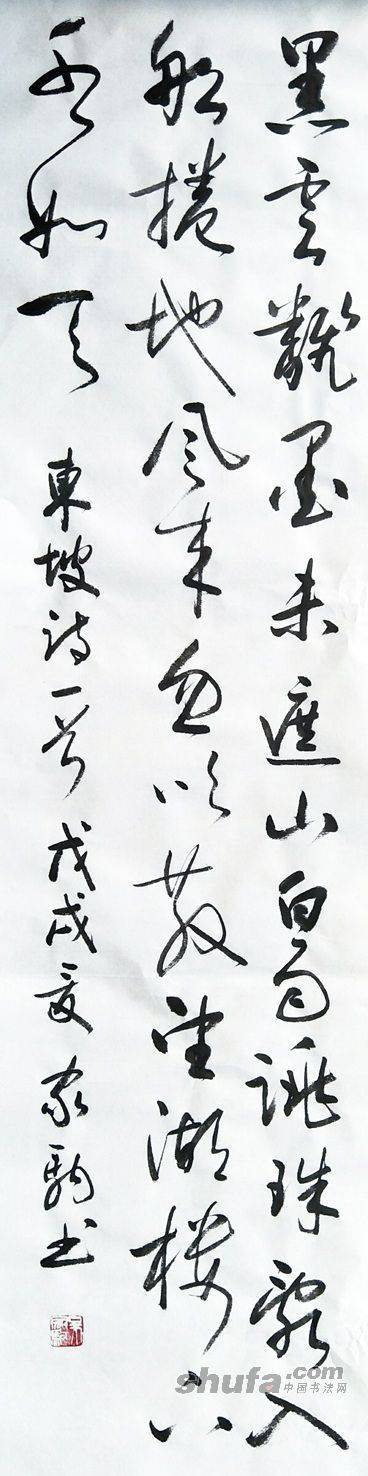 黑雲飜墨未遮山白雨跳珠亂入
船捲地風来忽吹散望湖楼下
水如天 東坡詩一首 戊戌夏 家駒书
shufa.com
中国书法网